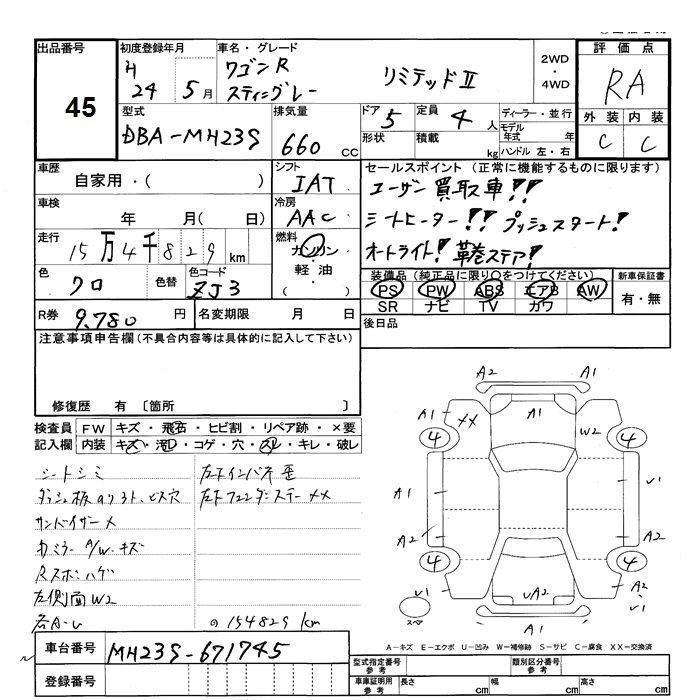 出品番号
45
初度登録年月
H 24 5月
車名・グレード
ワゴンR
スティングレー
リミテッドⅡ
2WD
・
4WD
評価点
RA
外装 内装
C C
型式
DBA-MH23S
排気量
660 CC
ドア 5
形状
定員 4 人
積載 kg
ディーラー・並行
モデル年式 年
ハンドル 左・右
車歴
自家用・( )
シフト
IAT
車検
年 月( 日)
冷房
AAC
走行
15万4千829 km
燃料
ガソリン
・
軽油
・
( )
色
クロ
色替
色コード
ZJ3
R券 9,780 円
名変期限 月 日
セールスポイント (正常に機能するものに限ります)
ユーザー買取車!!
シートヒーター!! プッシュスタート!
オートライト! 革巻ステア!
装備品(純正品に限り○をつけてください)
PS PW ABS エアB AW
SR ナビ TV カワ
新車保証書
有・無
後日品
注意事項申告欄(不具合内容等は具体的に記入して下さい)
修復歴 有 〔箇所 〕
検査員 FW キズ・飛石・ヒビ割・リペア跡・×要
記入欄 内装 キズ・汚レ・コゲ・穴・スレ・キレ・破レ
シートシミ
ダッシュ板のリヨト、ビス穴
サンバイザー×
カミラー A/W、キズ
Rスポハゲ
左側面W2
各A・U
左下インパネ歪
左下フェンダーステー××
の154829 km
A2 A1
A1 ×× A1 W2
4 4
A1 U1
A2 A2
4 4
U1 UA2 A2
U1
スペア
A1
A－キズ E－エクボ U－凹み W－補修跡 S－サビ C－腐食 XX－交換済
車台番号 MH23S-671745
登録番号
型式指定番号
参考
類別区分番号
参考
車庫証明用
参考
長さ cm 幅 cm 高さ cm